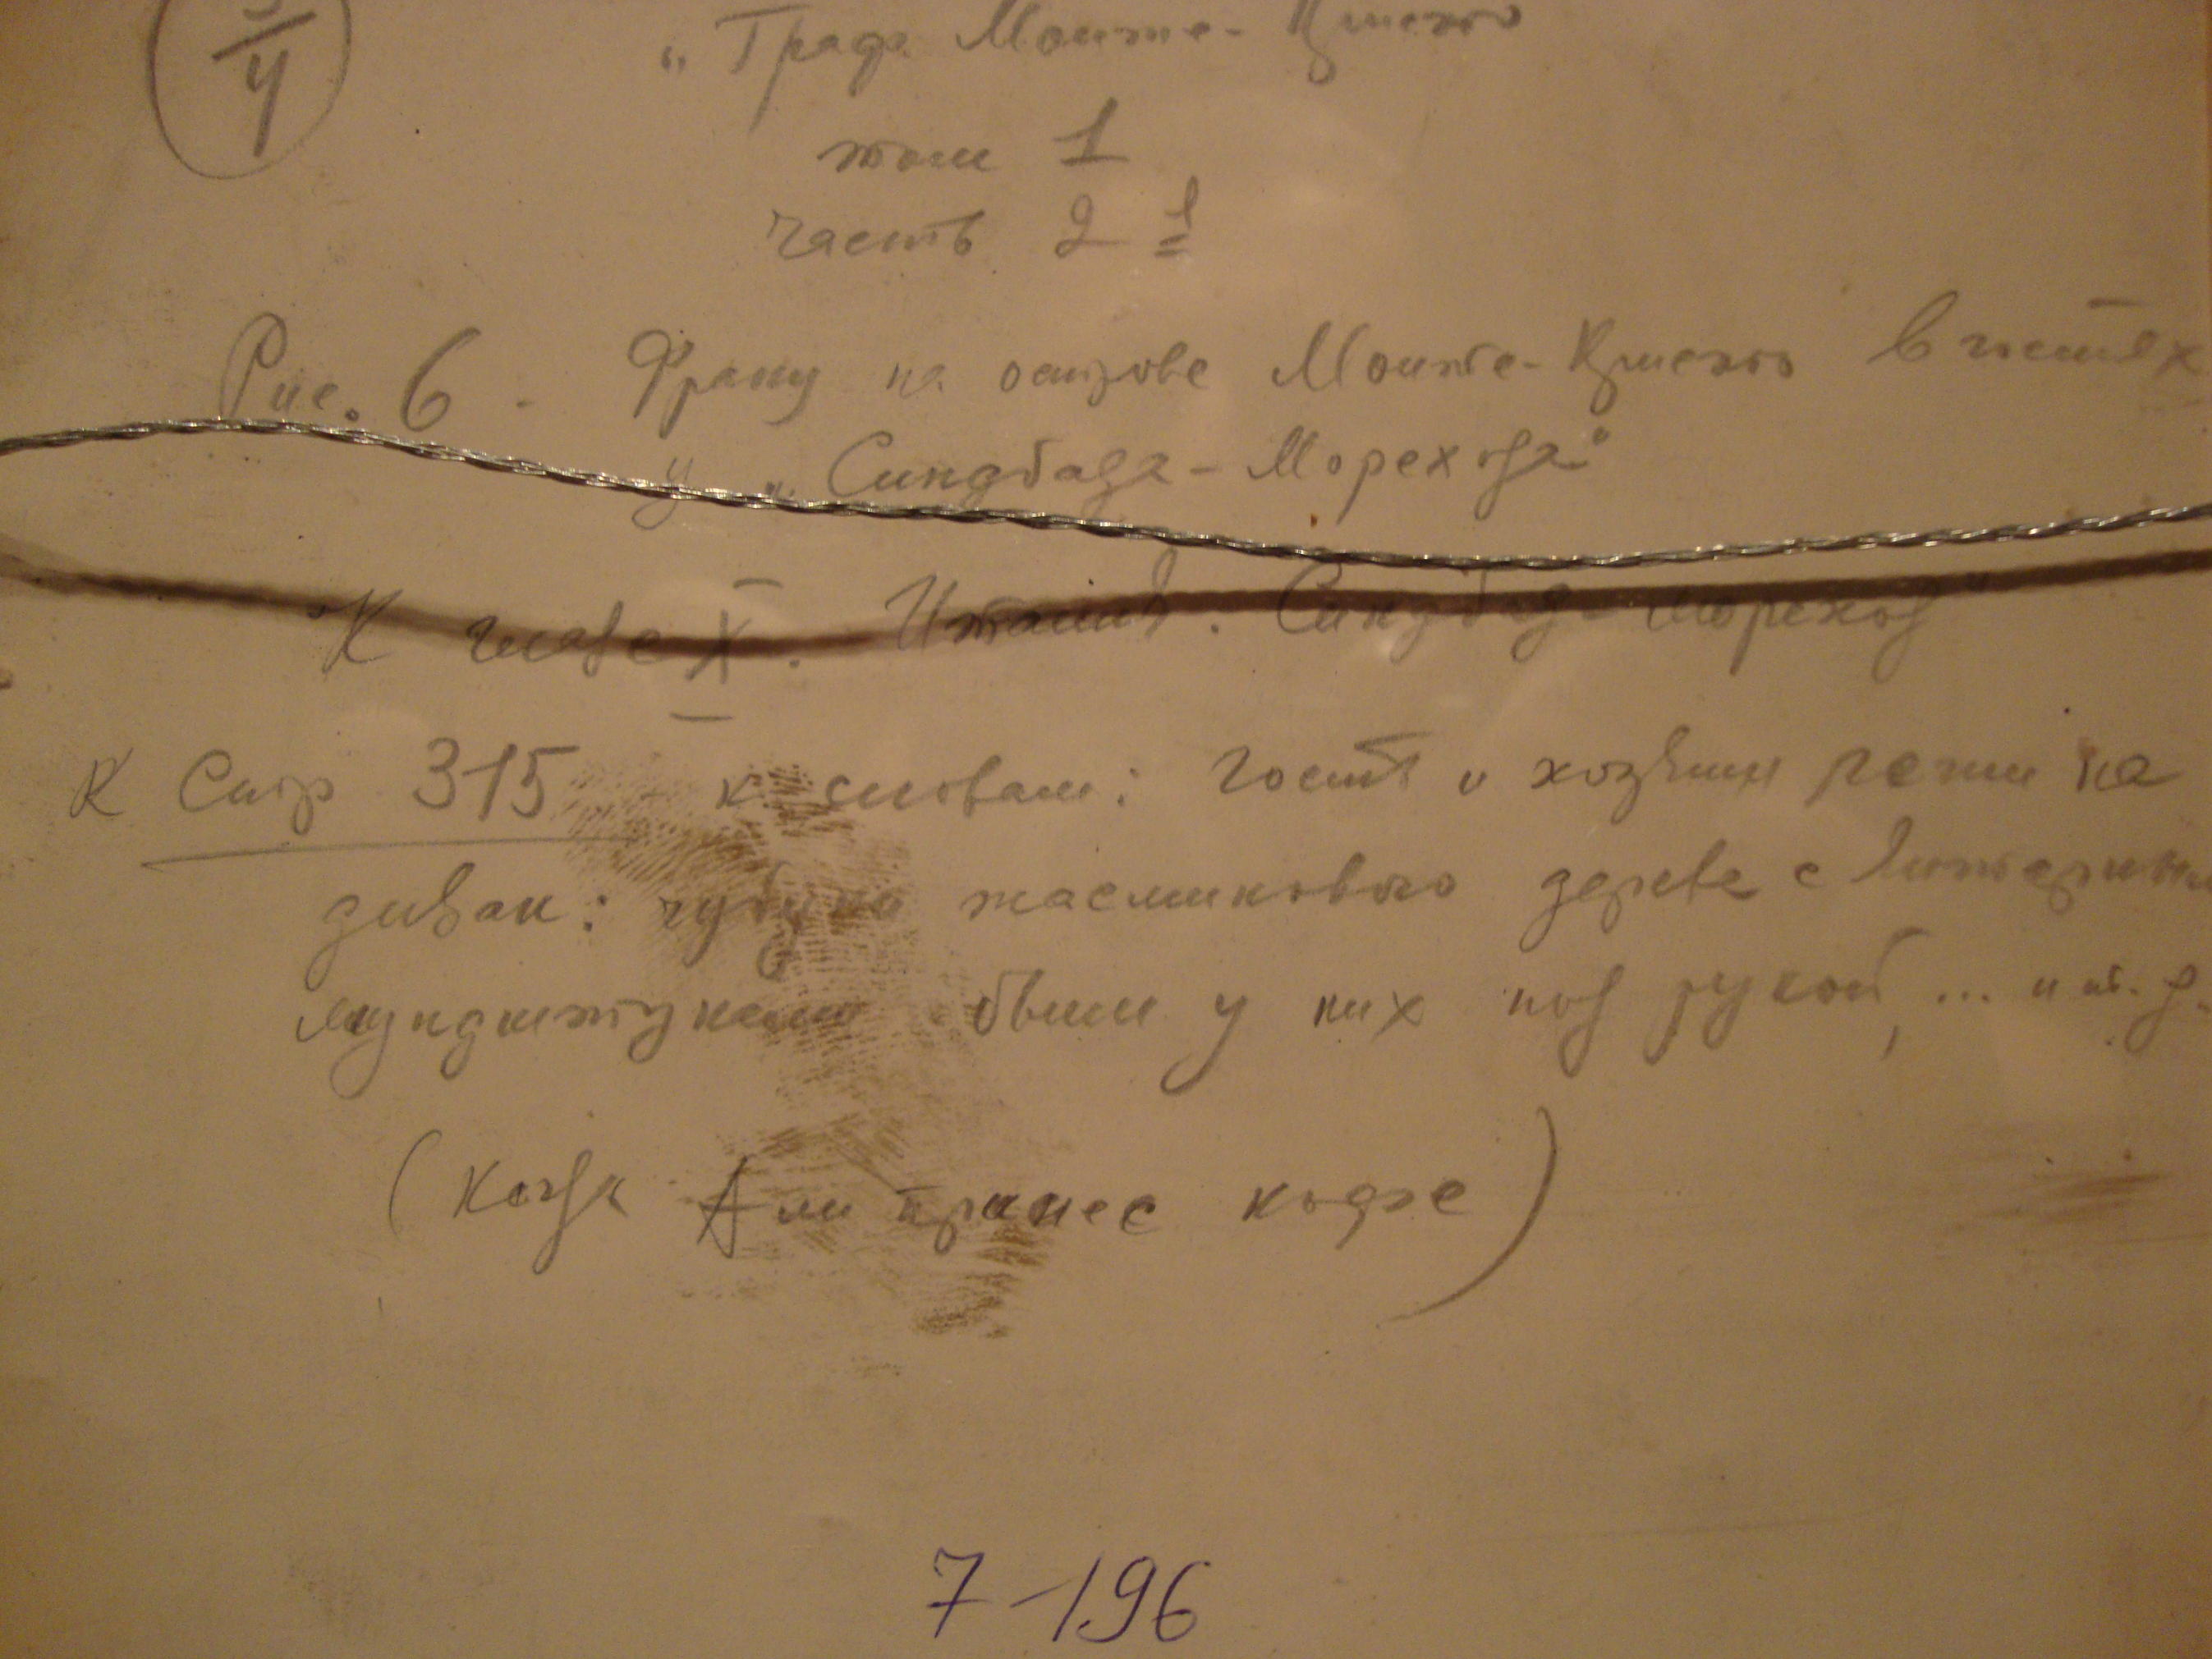 4
„Граф Монте-Кристо
том 1
часть 2 1
Рис. 6 - Франц на острове Монте-Кристо в гостях
у „Синдбада-Морехода"
К главе X. Италия. Синдбад-Мореход"
К Стр 315 - к словам: гость и хозяин легли на
диван: чубуки жасминового дерева с янтарными
мундштуками были у них под рукой, ... и т. д.
(Когда Али принес кофе)
7-196